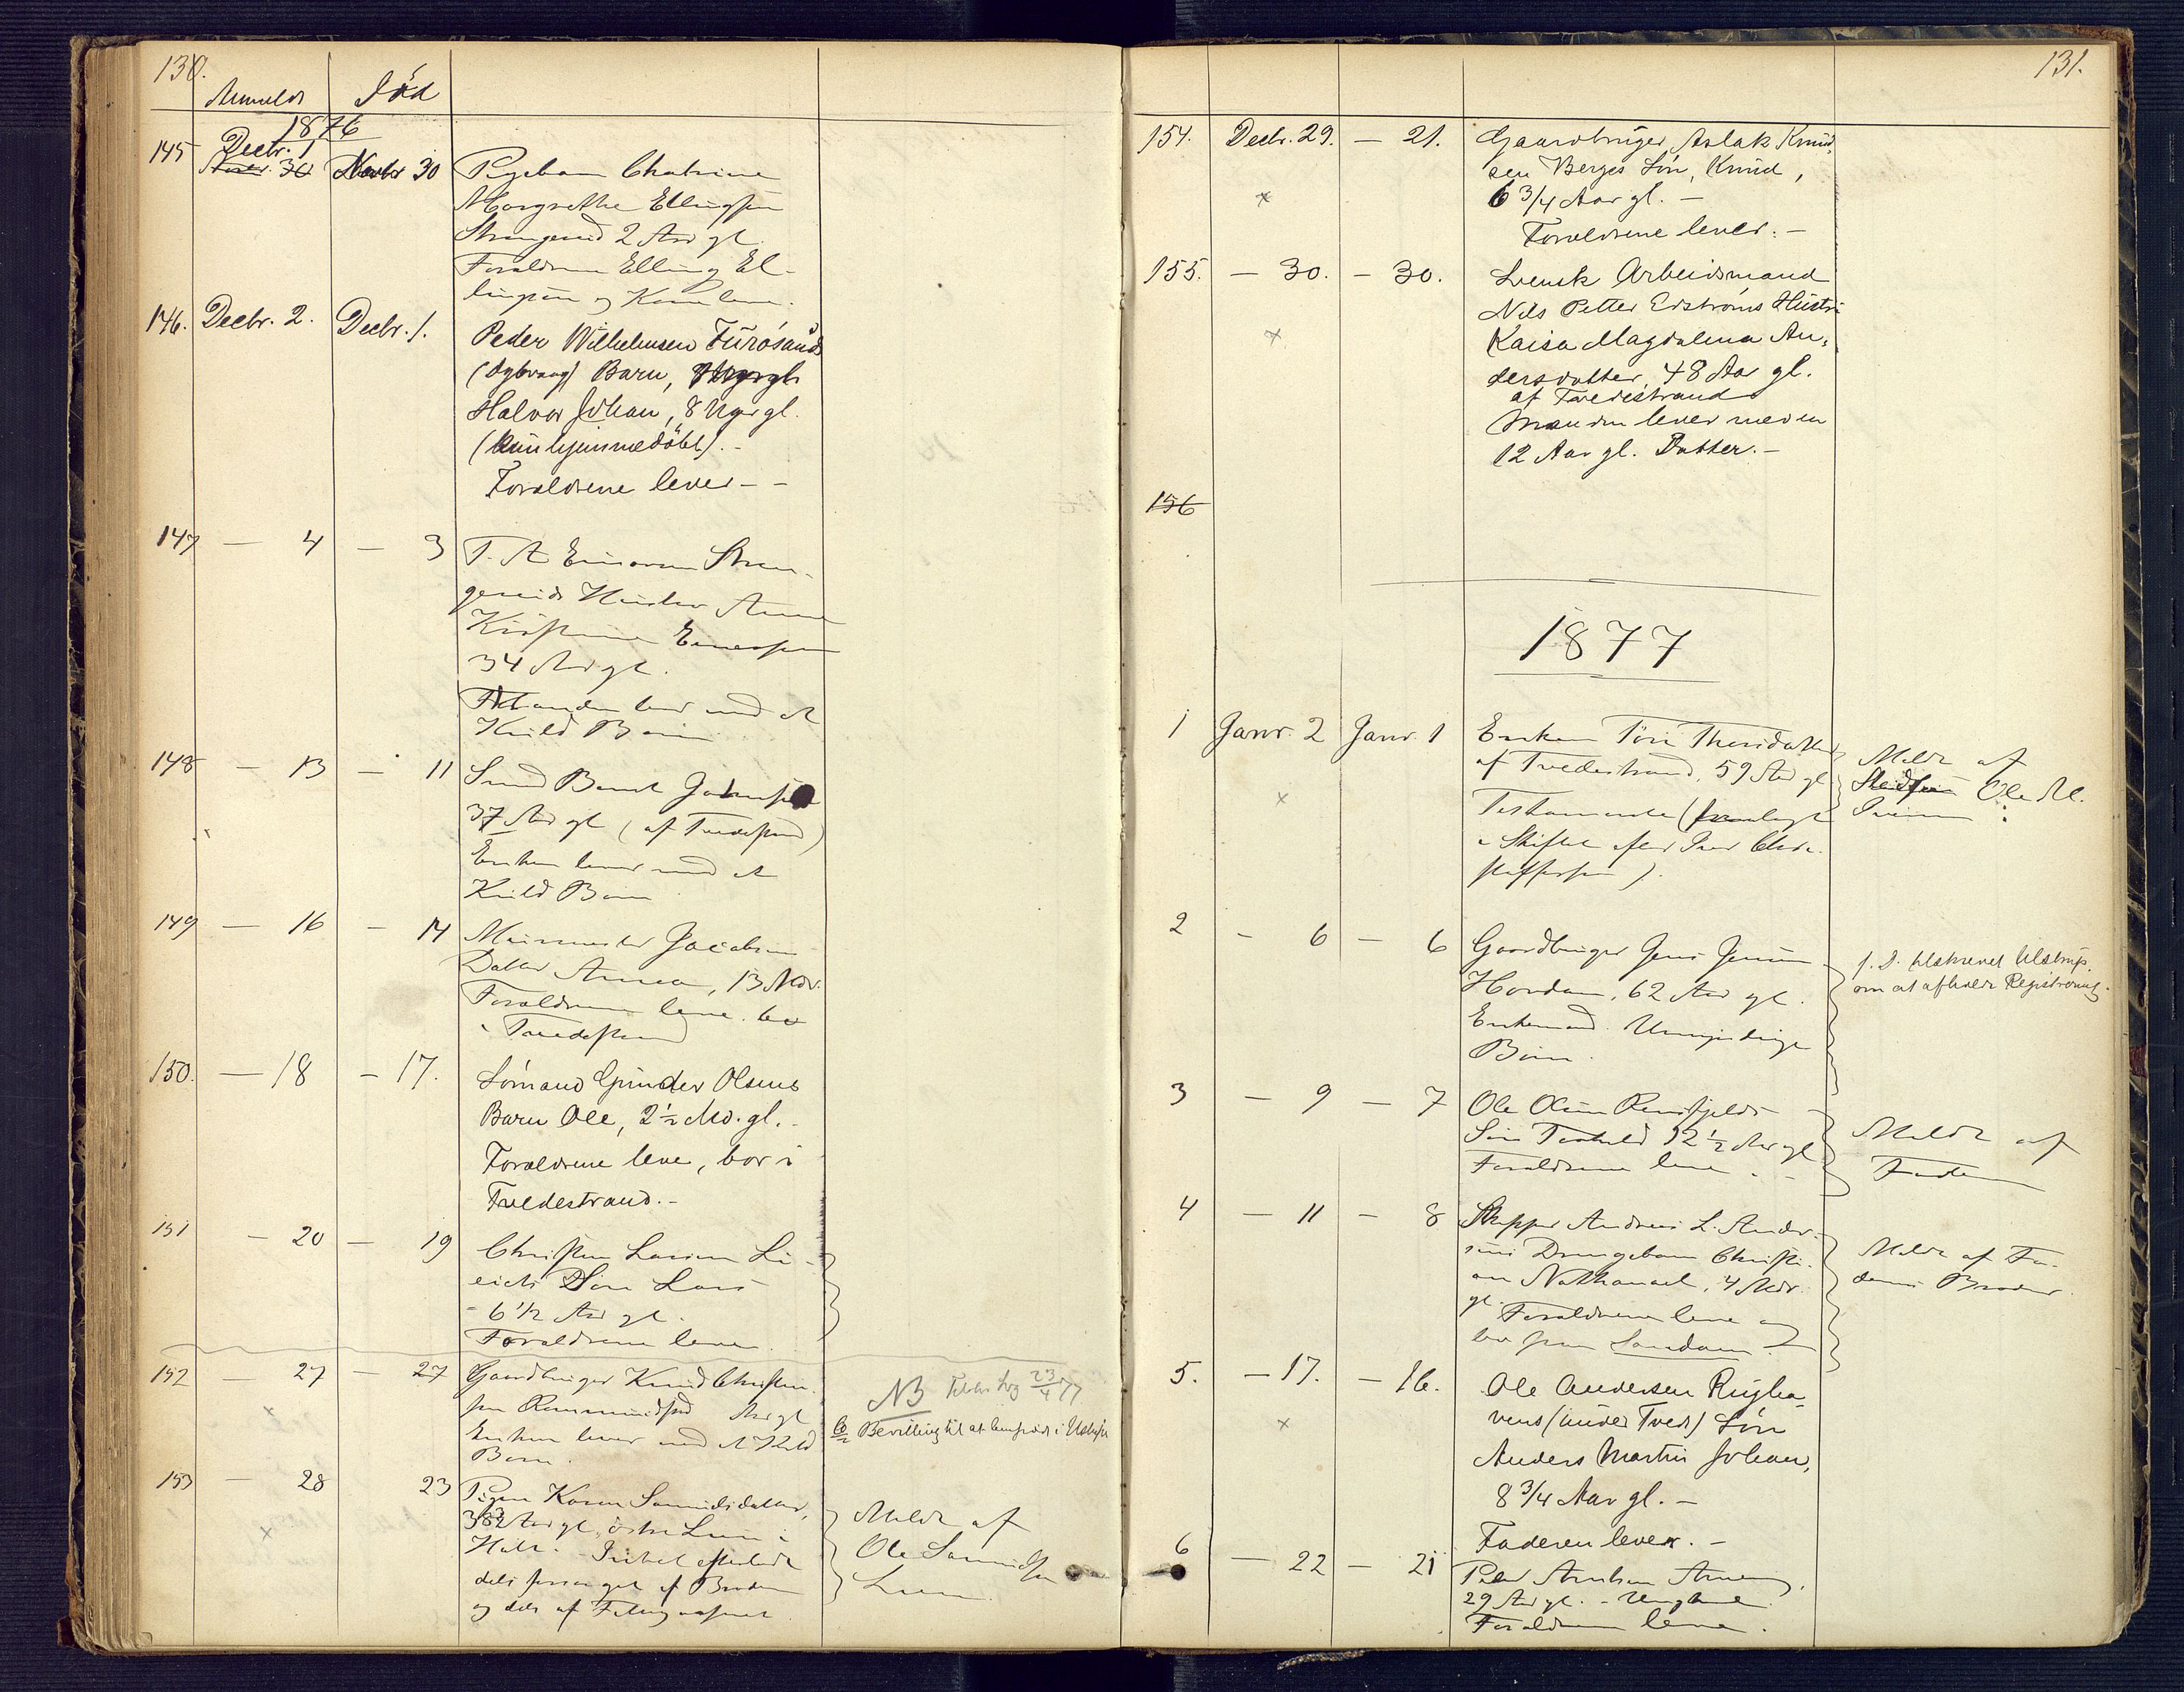 130.
Anmeldt Död
1876
145 Decbr. 1
Novbr. 30 Novbr 30 Pigebarn Chatrine
Margrethe Ellingsen
Strengereid 2 Aar gl.
Forældrene Elling El-
lingsen og Karen leve.
146. Decbr. 2. Decbr. 1. Peder Wilhelmsen Furösands
(Dybvaag) Barn,
Halvor Johan, 8 Uger gl.
(kun hjemmedöbt).-
Forældrene lever--
147 — 4 — 3 T. A. Einersen Stren-
gereids Hustru Anne
Kirstine Einersen
34 Aar gl.
Manden lever med et
Kuld Börn
148 — 13 — 11 Smed Bernt Jahnsen
37 Aar gl (af Tvedestrand)
Enken lever med et
Kuld Börn
149 — 16 — 14 Muurmester Jacobsens
Datter Annea, 13 Mdr.
Forældrene leve. bor
i Tvedestrand
150. — 18 — 17. Sömand Gunder Olsens
Barn Ole, 2½ Md. gl.-
Forældrene leve, bor i
Tvedestrand.-
151 — 20 — 19 Christen Larsen Li-
eids Sön Lars
- 6 1/2 Aar gl.
Forældrene leve.
152 — 27 — 27 Gaardbruger Knud Christen-
sen Aar gl
Enken lever med et Kuld
Börn.
NB 23/4 77
Bevilling til at
153 — 28 23 Pigen Karen Samuelsdatter,
Aar gl, östre Lun i
Holt. - Intet efterladt
dels forsørget af Broderen
og dels af Fattigvæsenet.
Meldt af
Ole Samuelsen
Lun
131.
154. Decbr. 29. — 21. Gaardbruger Aslak Knud-
sen Berges Sön, Knud,
6 3/4 Aar gl. —
Forældrene lever. —
155. — 30. — 30. Svensk Arbeidsmand
Nils Petter Edströms Hustru
Kaisa Magdalena An-
dersdatter, 48 Aar gl.
af Tvedestrand
Manden lever med en
12 Aar gl. Datter. —
156
1877
1 Janr. 2 Janr. 1 Enken Töri Thorsdatter
af Tvedestrand, 59 Aar gl
Testamente (fremlagt
i Skiftet efter Iver Chri-
stoffersen).
Meldt af
Ole M.
2 — 6 — 6 Gaardbruger Jens Jensen
Hovdan, 62 Aar gl.
Enkemand. Umyndige
Börn.
f. D. tilskrevet Ulstrup.
om at afholde Registrering.
3 — 9 — 7 Ole Olsen Rensfjelds
Sön Terkeld 12 1/2 Aar gl
Forældrene leve.
Meldt af
Faderen
4 — 11 — 8 Skipper Andreas L. Ander-
sens Drengebarn Christi-
an Nathanael, 4 Mdr.
gl. Forældrene leve og
bor paa Sandøen.
Meldt af Fa-
derens Broder.
5. — 17. — 16. Ole Andersen Rugha-
vens (under Tvedt) Sön
Anders Martin Johan,
8 3/4 Aar gl. —
Faderen lever. —
6 — 22 — 21 Peder Arntsen
29 Aar gl. - Ungkarl.
Forældrene leve.